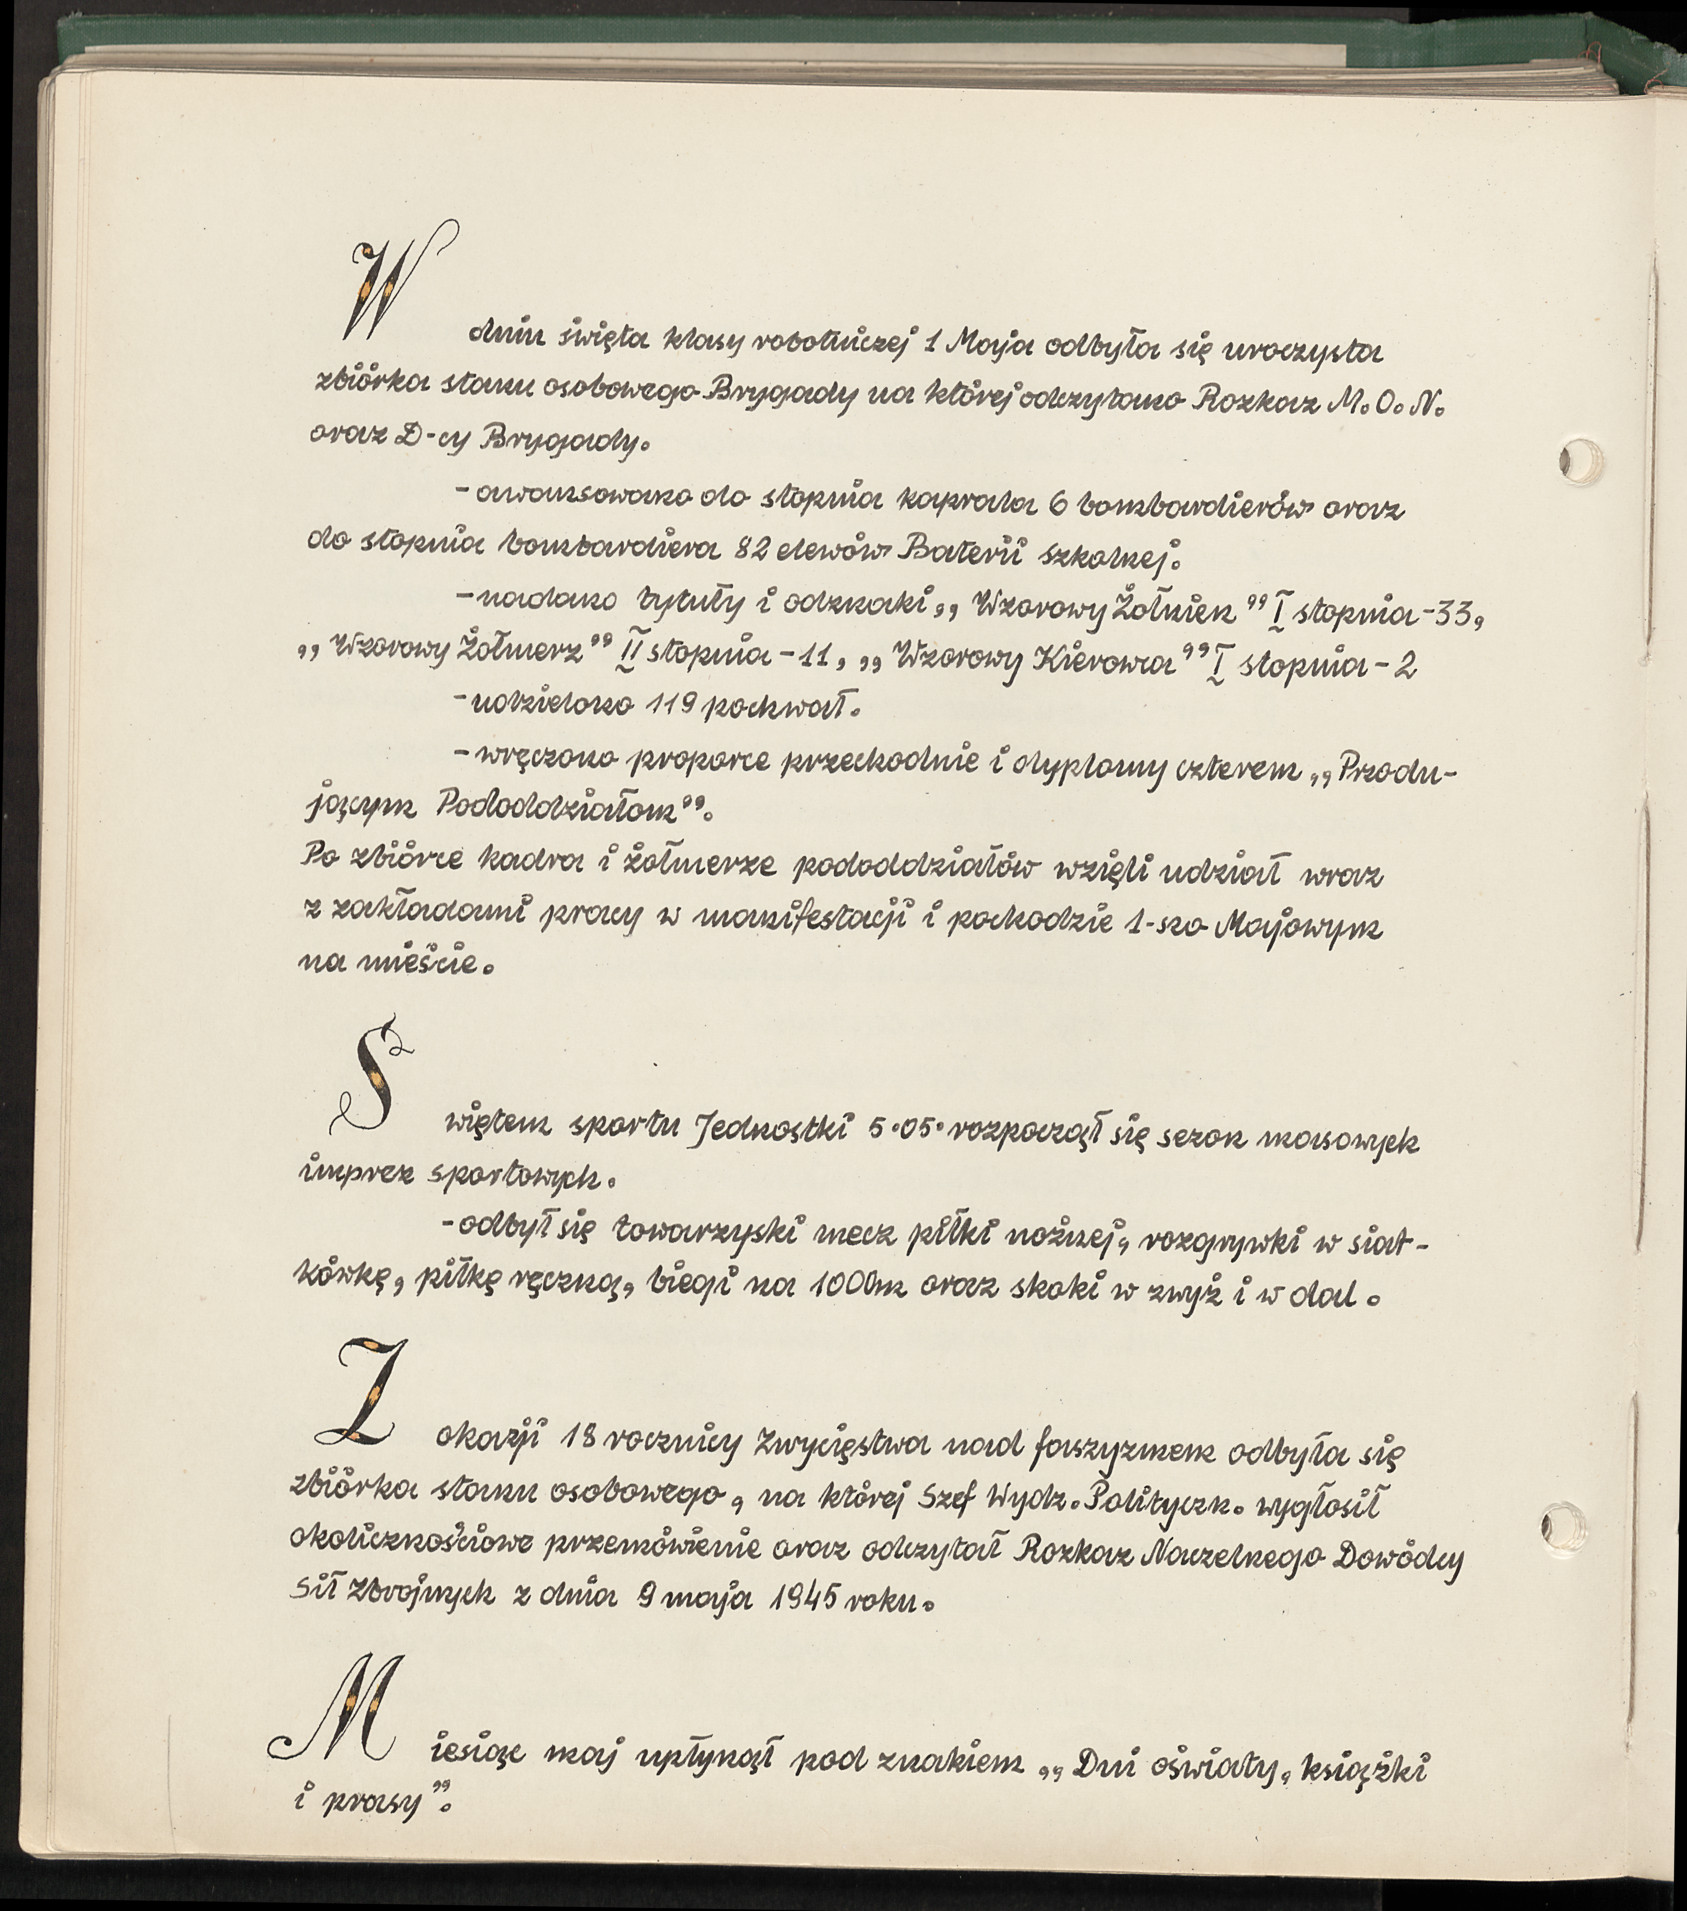 W dniu święta klasy robotniczej 1 Maja odbyła się uroczysta
zbiórka stanu osobowego Brygady na której odczytano Rozkaz M.O.N.
oraz D-cy Brygady.
- awansowano do stopnia kaprala 6 bombardierów oraz
do stopnia bombardiera 82 elewów Baterii szkolnej.
- nadano tytuły i odznaki „Wzorowy Żołnierz” I stopnia - 33,
„Wzorowy Żołnierz” II stopnia - 11, „Wzorowy Kierowca” I stopnia - 2
- udzielono 119 pochwał.
- wręczono proporce przechodnie i dyplomy czterem „Przodu-
jącym Pododdziałom”.
Po zbiórce kadra i żołnierze pododdziałów wzięli udział wraz
z zakładami pracy w manifestacji i pochodzie 1-szo Majowym
na mieście.
Świętem sportu Jednostki 5.05. rozpoczął się sezon masowych
imprez sportowych.
- odbył się towarzyski mecz piłki nożnej, rozgrywki w siat-
kówkę, piłkę ręczną, biegi na 1000m oraz skoki w zwyż i w dal.
Z okazji 18 rocznicy Zwycięstwa nad faszyzmem odbyła się
zbiórka stanu osobowego, na której Szef Wydz. Polityczn. wygłosił
okolicznościowe przemówienie oraz odczytał Rozkaz Naczelnego Dowódcy
Sił Zbrojnych z dnia 9 maja 1945 roku.
Miesiąc maj upłynął pod znakiem „Dni oświaty, książki
i prasy”.